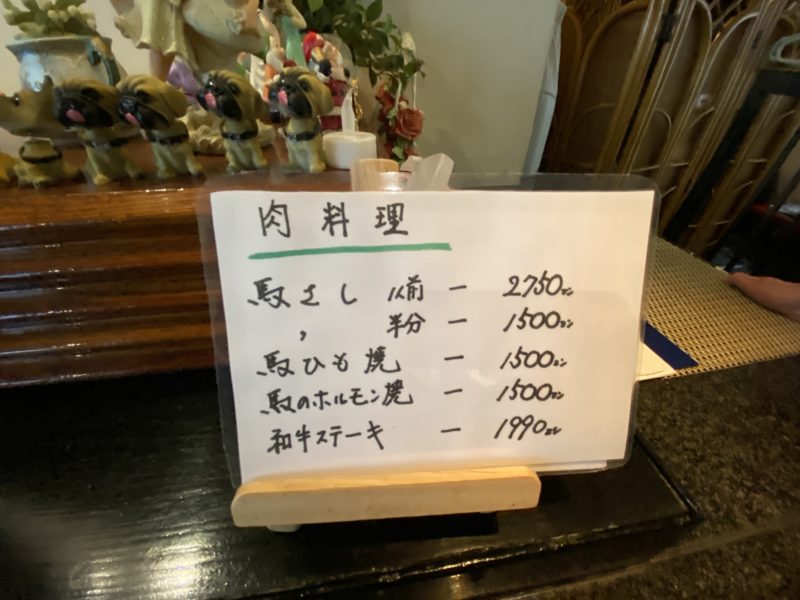 肉料理
馬さし 1人前 ー 2750エン
〃 半分 ー 1500エン
馬ひも焼 ー 1500エン
馬のホルモン焼 ー 1500エン
和牛ステーキ ー 1990エン